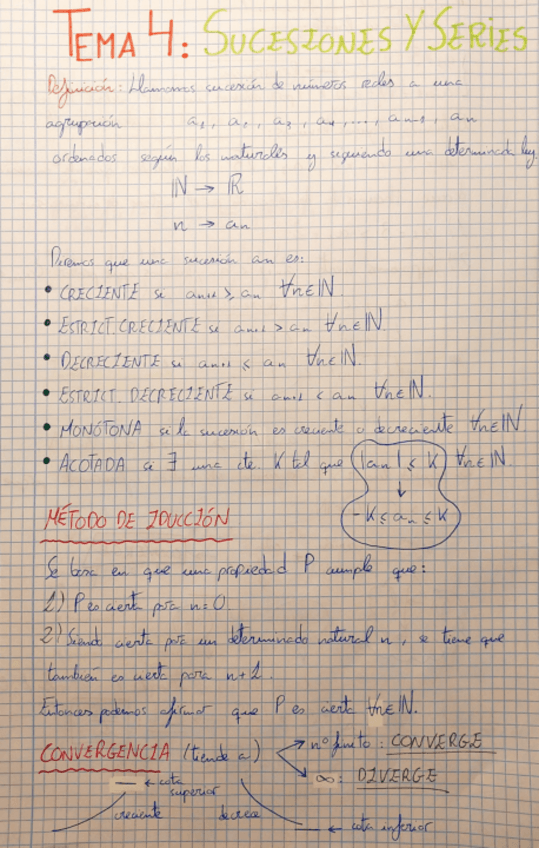 TEMA 4: SUCESIONES Y SERIES
Definición: Llamamos sucesión de números reales a una
agrupación a₁, a₂, a₃, a₄, ..., aₙ₋₁, aₙ
ordenados según los naturales y siguiendo una determinada ley.
ℕ → ℝ
n → aₙ
Diremos que una sucesión aₙ es:
• CRECIENTE si aₙ₊₁ ≥ aₙ ∀n∈ℕ.
• ESTRICT. CRECIENTE si aₙ₊₁ > aₙ ∀n∈ℕ.
• DECRECIENTE si aₙ₊₁ ≤ aₙ ∀n∈ℕ.
• ESTRICT. DECRECIENTE si aₙ₊₁ < aₙ ∀n∈ℕ.
• MONÓTONA si la sucesión es creciente o decreciente ∀n∈ℕ
• ACOTADA si ∃ una cte. K tal que |aₙ| ≤ K ∀n∈ℕ.
↓
-K ≤ aₙ ≤ K
MÉTODO DE IDUCCIÓN
Se basa en que una propiedad P cumple que:
1) P es cierta para n=0
2) Siendo cierta para un determinado natural n, se tiene que
también es cierta para n+1.
Entonces podemos afirmar que P es cierta ∀n∈ℕ.
CONVERGENCIA (tiende a) → nº finito: CONVERGE
→ ∞: DIVERGE
← cota superior
creciente decrece ← cota inferior